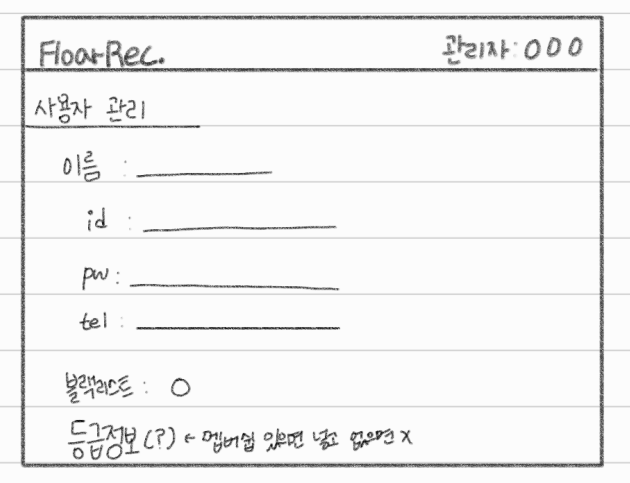 FloorRec. 관리자 : 000
사용자 관리
이름 :
id :
pw :
tel :
블랙리스트 : O
등급정보(?) ← 멤버쉽 있으면 넣고 없으면 x